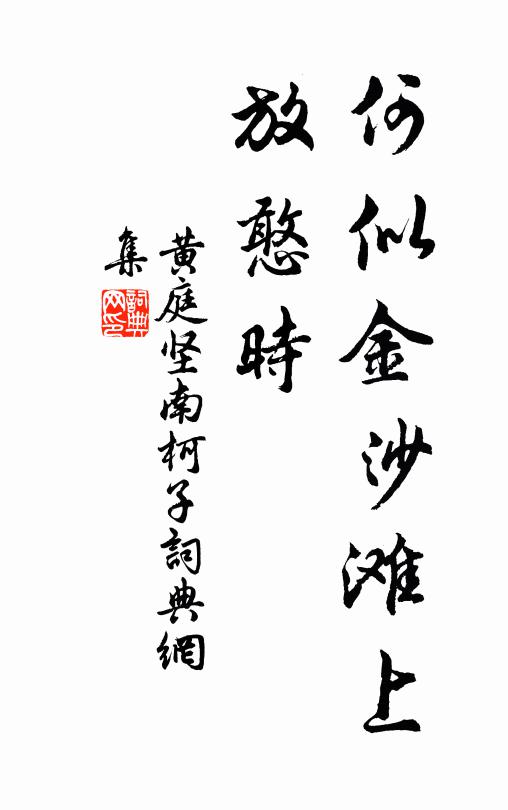 何似金沙滩上
放憨時
黄庭坚南柯子詞典網
集
詞典
网印